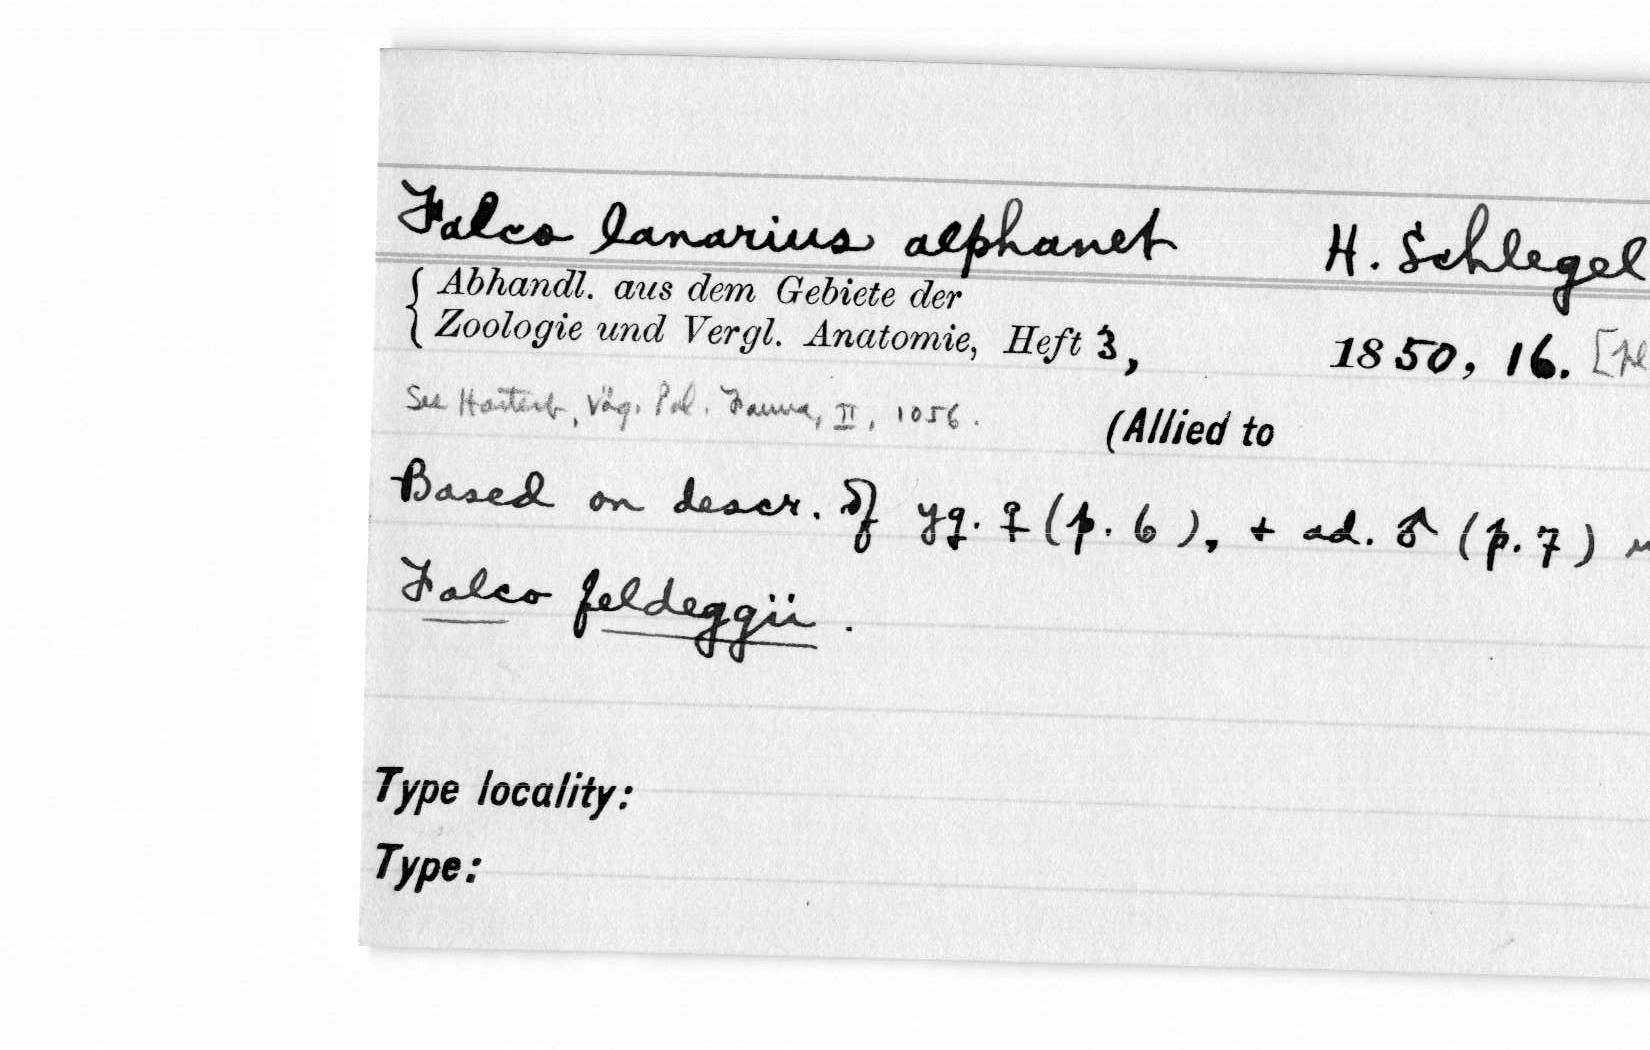 Falco lanarius alphanet H. Schlegel
Abhandl. aus dem Gebiete der
Zoologie und Vergl. Anatomie, Heft 3, 1850, 16.
See Hartert, Vög. Pal. Fauna, II, 1056.
(Allied to
Based on descr. of yg. ♀ (p. 6), + ad. ♂ (p. 7)
Falco feldeggii.
Type locality:
Type: